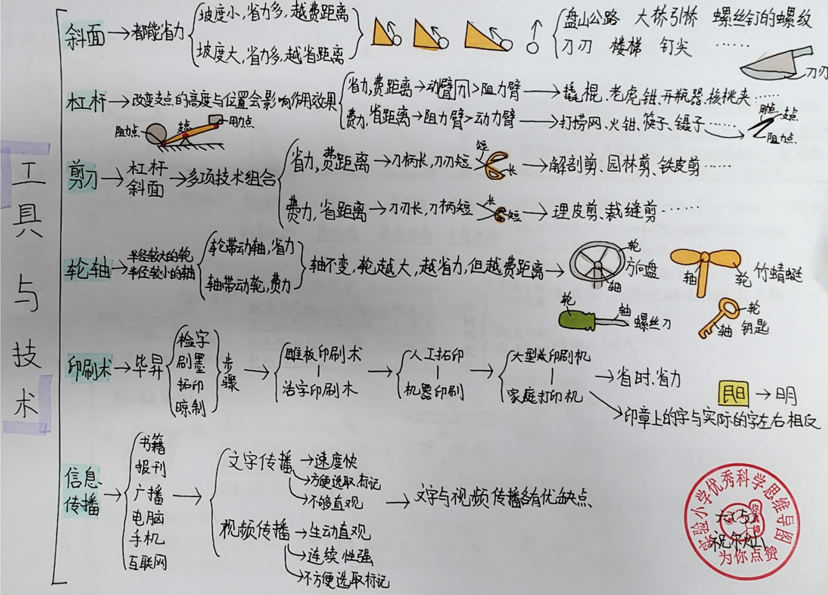 工具与技术
斜面→都能省力
坡度小,省力多,越费距离
坡度大,省力多,越省距离
盘山公路 大桥引桥 螺丝钉的螺纹
刀刃 楼梯 钉尖 ……
刀刃
杠杆→改变支点的高度与位置会影响作用效果
省力,费距离→动臂刃>阻力臂→撬棍、老虎钳、开瓶器、核桃夹……
费力,省距离→阻力臂>动力臂→打捞网、火钳、筷子、镊子……
阻力点 支点 用力点
支点
阻力点
剪刀→杠杆 斜面→多项技术组合
省力,费距离→刀柄长,刀刃短→解剖剪、园林剪、铁皮剪……
短
长
费力,省距离→刀刃长,刀柄短→理皮剪、裁缝剪……
长
短
轮轴→半径较大的轮 半径较小的轴
轮带动轴,省力
轴带动轮,费力
轴不变,轮越大,越省力,但越费距离→
轮
方向盘
轴
轴 轮 竹蜻蜓
轮 轴 螺丝刀
轮
轴 钥匙
印刷术→毕昇
检字
刷墨
拓印
晾制
步骤
雕板印刷术
活字印刷术
人工拓印
机器印刷
大型
印刷机
家庭打印机
省时、省力
→明
印章上的字与实际的字左右相反
信息传播
书籍
报刊
广播
电脑
手机
互联网
文字传播→速度快
→方便选取标记
→不够直观
视频传播→生动直观
→连续性强
→不方便选取标记
文字与视频传播各有优缺点
实验小学优秀科学思维导图
六(5)
为你点赞